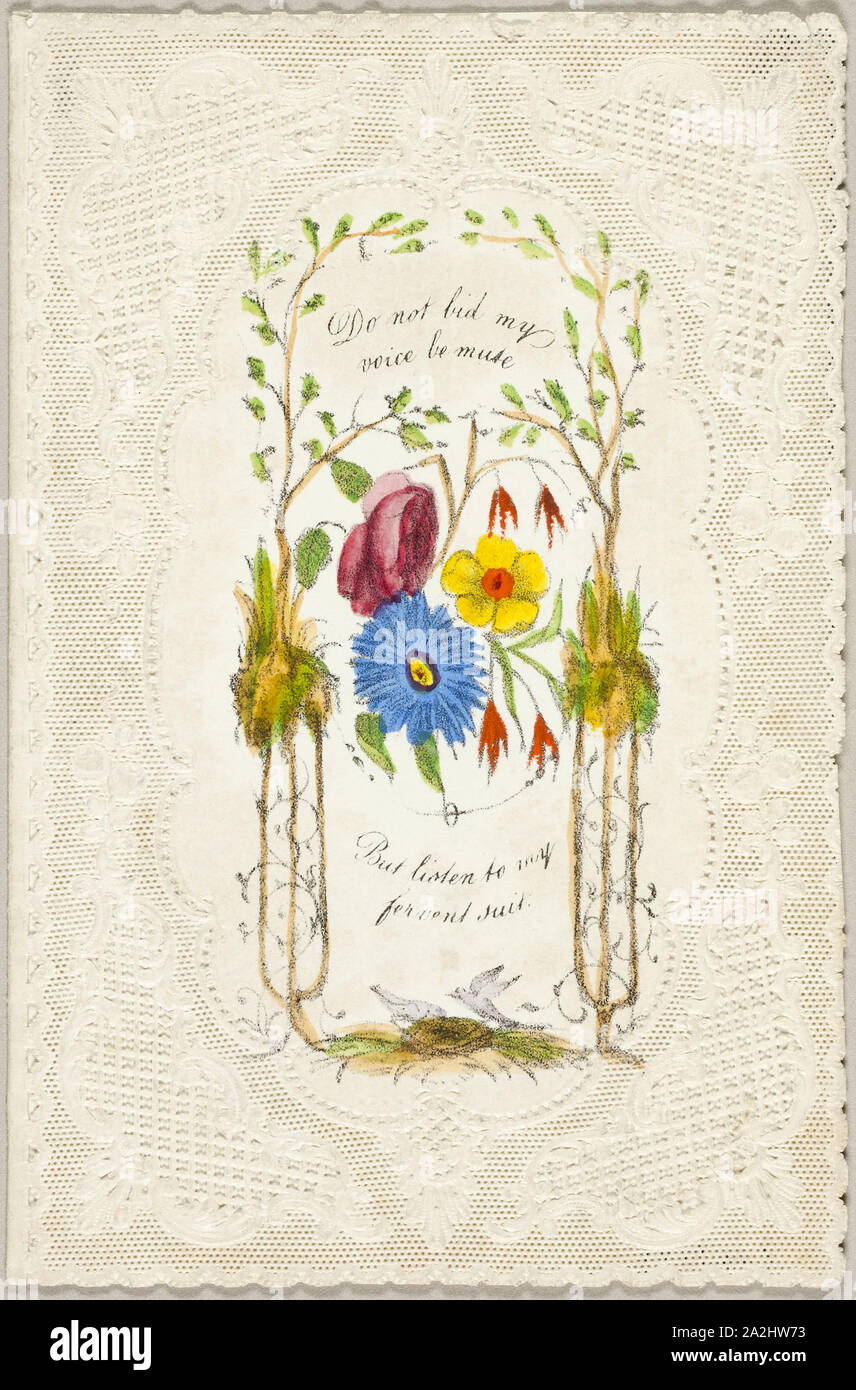 Do not bid my
voice be mute
But listen to my
fervent suit.
alamy
Image ID: 2A2HW73
www.alamy.com